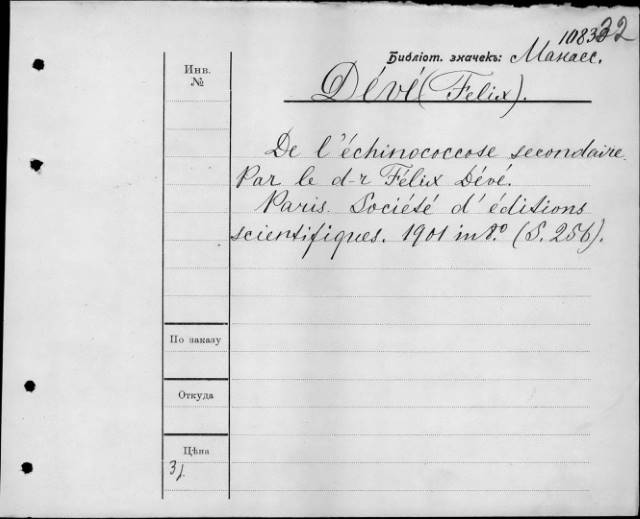 Библіот. значекъ: Манасс.
Инв.
№
Dévé (Felix).
De l'échinococcose secondaire.
Par le d-r Félix Dévé.
Paris. Société d'éditions
scientifiques. 1901 in 8.° (S. 256).
По заказу
Откуда
Цѣна